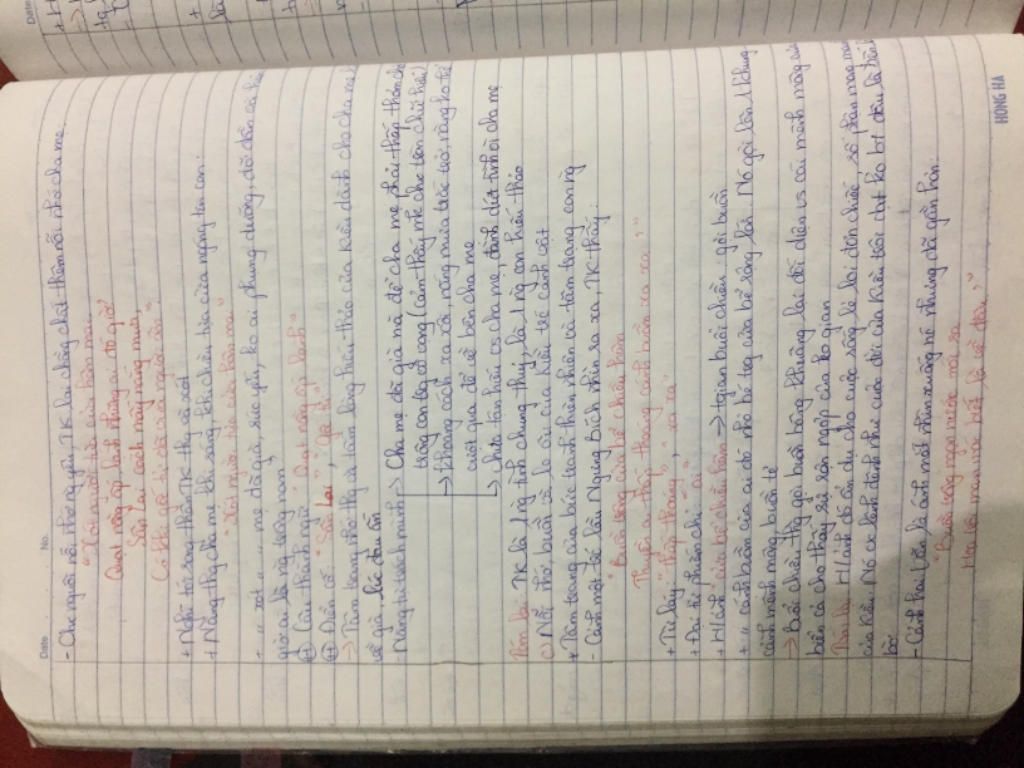 Date No.
- Chợ người nỗi nhớ ng yêu, TK lại chồng chất thêm nỗi nhớ cha mẹ.
"Xót người tựa cửa hôm mai,
Quạt nồng ấp lạnh những ai đó giờ?
Sân Lai cách mấy nắng mưa,
Có khi gốc tử đã vừa người ôm".
+ Nghĩ tới song thân TK thg và xót
+ Nàng thg cha mẹ khi sáng, khi chiều tựa cửa ngóng tin con:
"Xót người tựa cửa hôm mai"
+ " xót " " mẹ đã già, sức yếu, ko ai phụng dưỡng, đỡ đần
giờ ai là ng trông nom
+ Các thành ngữ: "Quạt nồng ấp lạnh"
+ Điển cố: "Sân Lai", "gốc tử"
-> Tâm trạng nhớ thg và tấm lòng hiếu thảo của Kiều dành cho cha mẹ
về già, lúc đau ốm
- Nàng tự trách mình -> Cha mẹ đã già mà để cha mẹ phải thấp thỏm
trông con tựa cửa ngóng (cảm thấy mk chưa tròn chữ hiếu)
-> khoảng cách xa xôi, nắng mưa trắc trở, nàng ko thể
vượt qua để về bên cha mẹ
-> chưa tròn hiếu vs cha mẹ, đành dứt tình vs cha mẹ
Tóm lại: TK là 1 ng tình chung thuỷ, là 1 ng con hiếu thảo
c) Nỗi nhớ, buồn và lo âu của Kiều tả cảnh vật
+ Tâm trạng của bức tranh thiên nhiên và tâm trạng con ng
- Cảnh một: từ lầu Ngưng Bích nhìn ra xa, TK thấy:
"Buồn trông cửa bể chiều hôm
Thuyền ai thấp thoáng cánh buồm xa xa"
+ Từ láy "thấp thoáng", "xa xa"
+ Đại từ phiếm chỉ "ai"
+ H/ảnh cửa bể chiều hôm -> tgian buổi chiều gợi buồn
+ " cánh buồm của ai đó nhỏ bé tựa cửa bể rộng lớn. Nó gợi lên 1 khung
cảnh mênh mông biển cả
-> Buổi chiều thg gợi buồn bâng khuâng, lại đối diện vs cái mênh mông của
biển cả cho thấy sự rợn ngợp của ko gian
Tóm lại: H/ảnh đó ẩn dụ cho cuộc sống lẻ loi đơn chiếc, số phận mong manh
của Kiều. Nó đc đánh tình như cuộc đời của Kiều trôi dạt ko bt đâu là bến
bờ
- Cảnh hai vẫn là ánh mắt nhìn xuống nc nhưng đã gần hơn:
"Buồn trông ngọn nước mới sa
Hoa trôi man mác biết là về đâu"
HONG HA